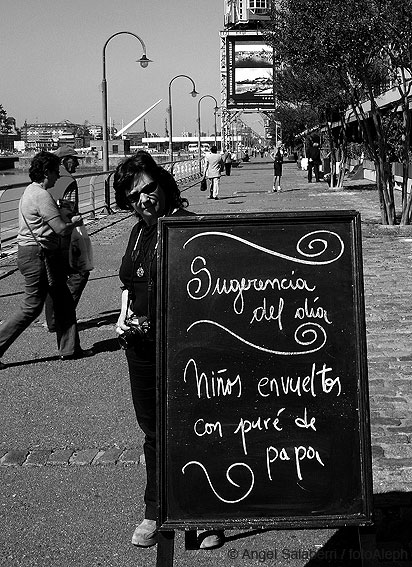 Sugerencia
del día
Niños envueltos
con puré de
papa
© Angel Salaberri / fotoAleph